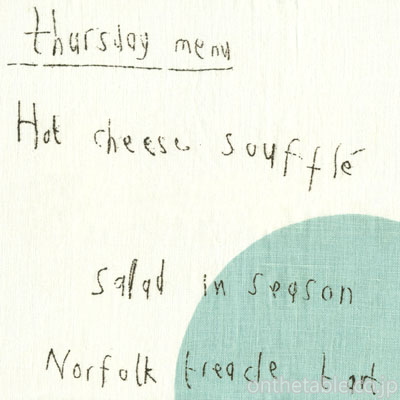 thursday menu
Hot cheese soufflé
salad in season
Norfolk treacle tart
onthetable.co.jp